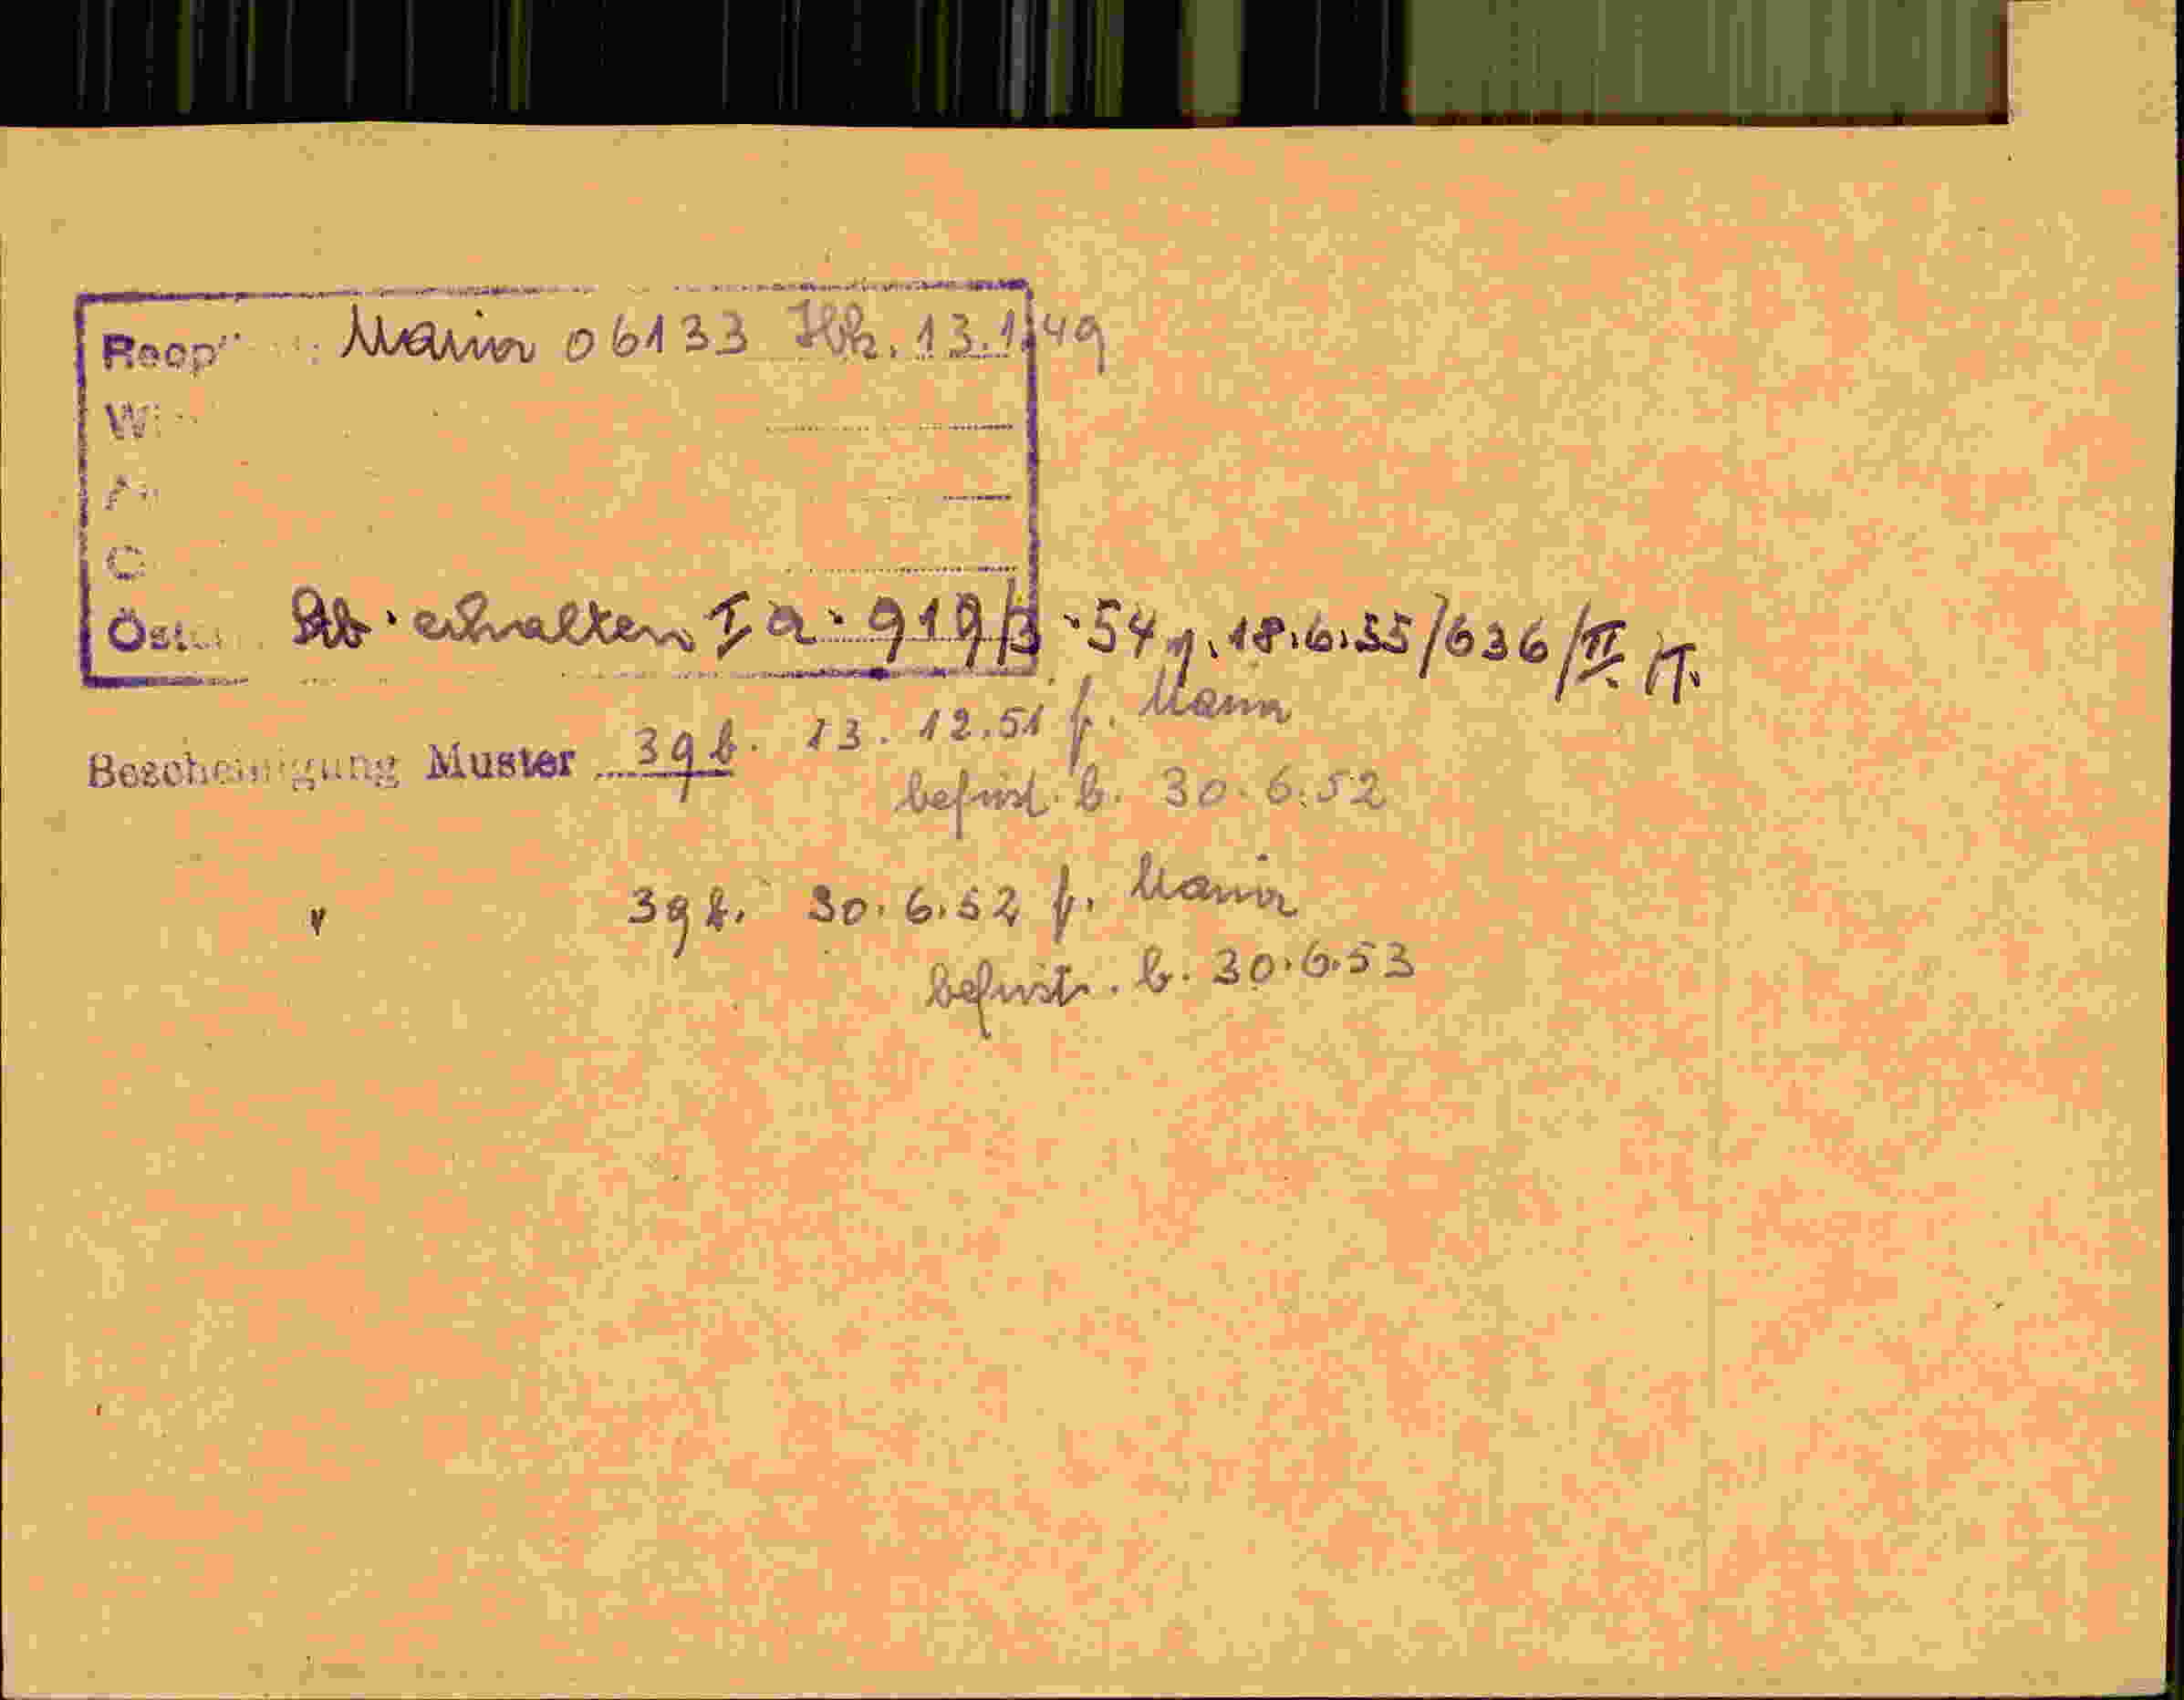 Maria 06133 Hbk. 13.1.49
Stb. erhalten I a. 919/3.54 v. 18.6.55/636/II/T.
Bescheinigung Muster 39 b. 13.12.51 f. Maria
befrist. b. 30.6.52
" 39 b. 30.6.52 f. Maria
befrist. b. 30.6.53